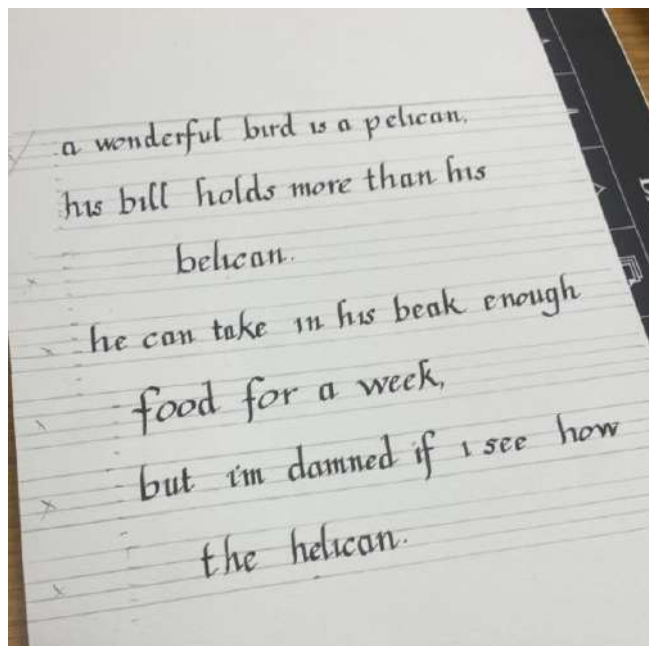 a wonderful bird is a pelican,
his bill holds more than his
belican.
he can take in his beak enough
food for a week,
but i'm damned if i see how
the helican.